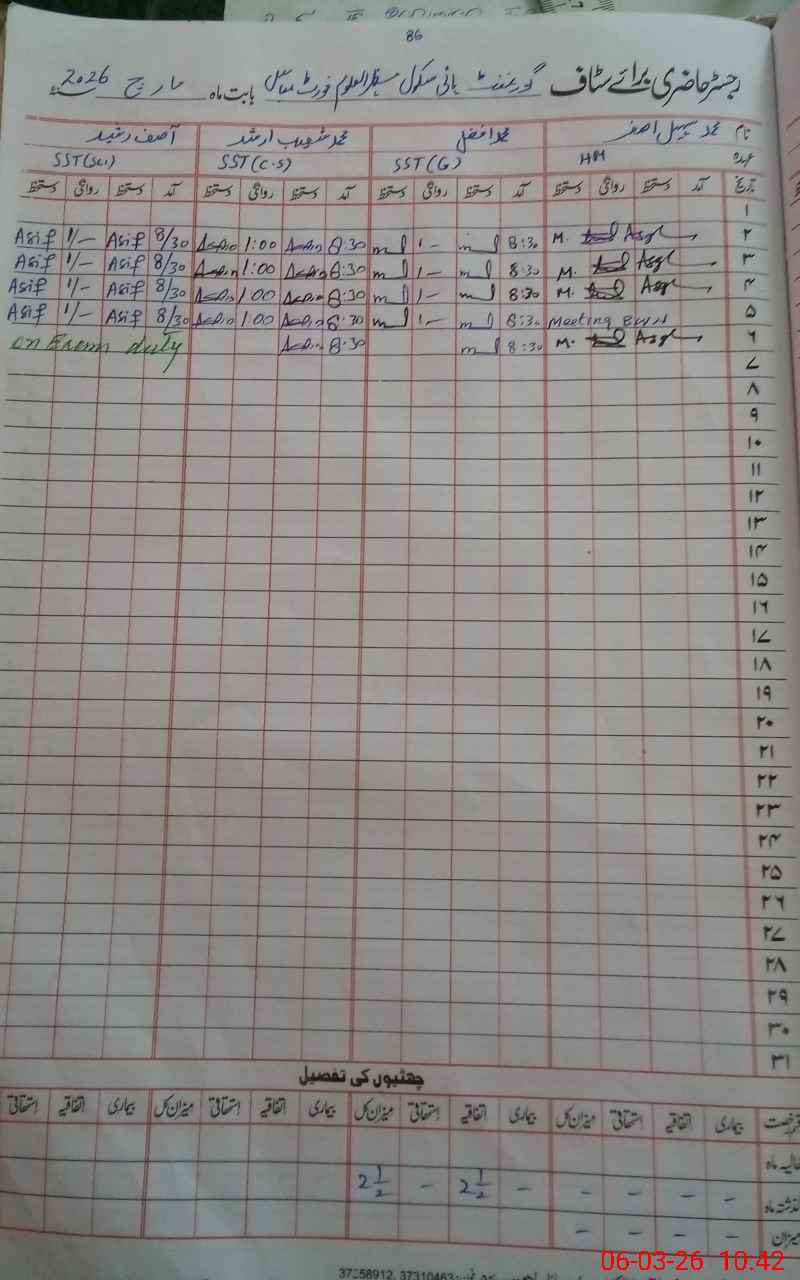 86
رجسٹر حاضری برائے سٹاف گورنمنٹ ہائی سکول مظہر العلوم فورٹ عباس بابت ماہ مارچ 2026
نام محمد سہیل اصغر محمد افضل محمد شعیب ارشد آصف رشید
عہدہ HM SST(G) SST(C.S) SST(Sci)
تاریخ آمد دستخط روانگی دستخط آمد دستخط روانگی دستخط آمد دستخط روانگی دستخط آمد دستخط روانگی دستخط
۱
۲ M. 8:30 1- 8:30 1:00 8/30 Asif 1/- Asif
۳ M. 8:30 1- 8:30 1:00 8/30 Asif 1/- Asif
۴ M. 8:30 1- 8:30 1:00 8/30 Asif 1/- Asif
۵ Meeting BWN 8:30 1- 8:30 1:00 8/30 Asif 1/- Asif
۶ M. 8:30 8:30 on Exam duty
۷
۸
۹
۱۰
۱۱
۱۲
۱۳
۱۴
۱۵
۱۶
۱۷
۱۸
۱۹
۲۰
۲۱
۲۲
۲۳
۲۴
۲۵
۲۶
۲۷
۲۸
۲۹
۳۰
۳۱
چھٹیوں کی تفصیل
رخصت بیماری اتفاقیہ استحقاقی میزان کل بیماری اتفاقیہ استحقاقی میزان کل بیماری اتفاقیہ استحقاقی میزان کل بیماری اتفاقیہ استحقاقی
حالیہ ماہ
گذشتہ ماہ - - - - - 2 1/2 - 2 1/2
میزان - - - -
37258912, 37310463
06-03-26 10:42